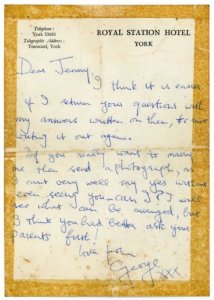 Telephone:
York 53681
Telegraphic Address:
Yostenrol, York
ROYAL STATION HOTEL
YORK
Dear Jenny,
I think it is easier
if I return your questions with
my answers written on them, to save
writing it out again.
If you really want to marry
me then send a photograph, as I
can't very well say yes without
even seeing you – can I? I'll
see what can be arranged, but
I think you had better ask your
parents first!
love from
George
xxx